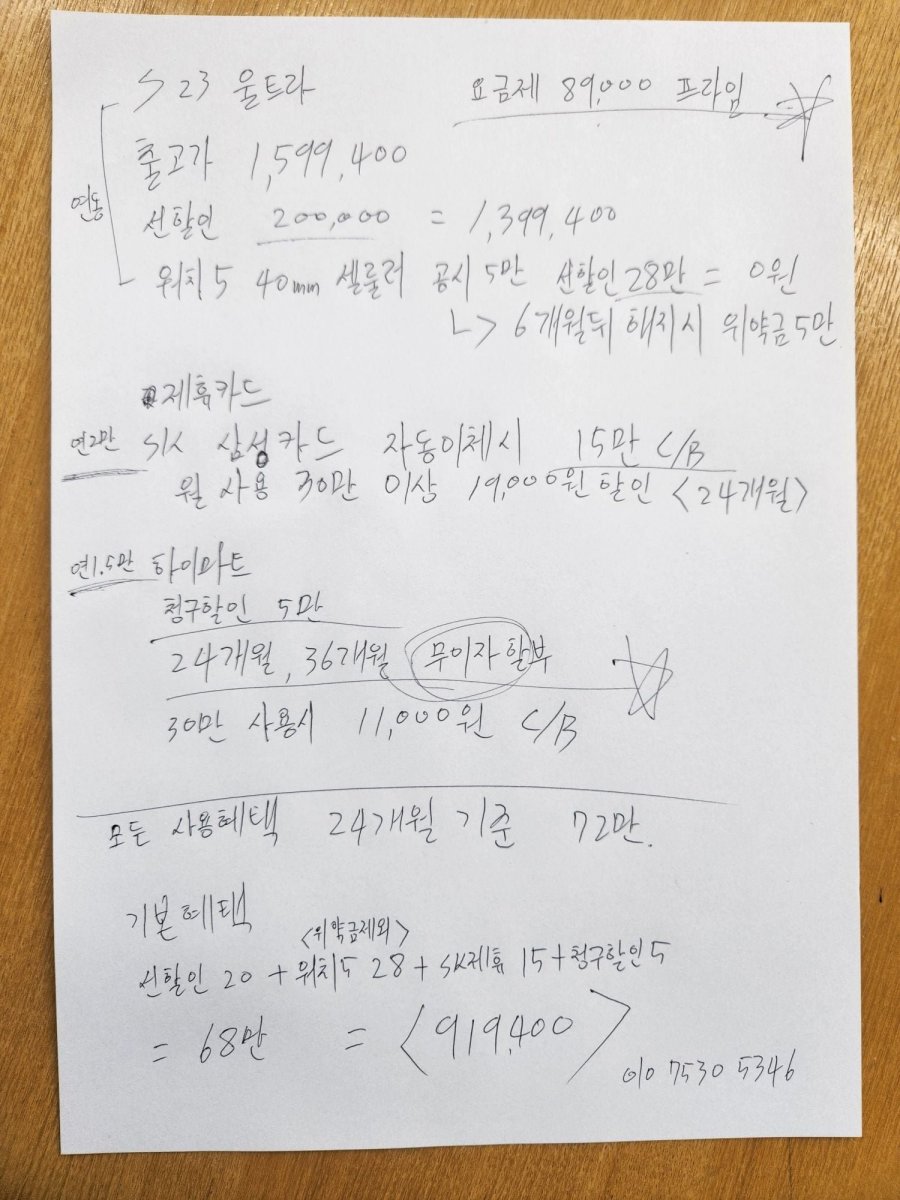 S23 울트라
요금제 89,000 프라임
연동
출고가 1,599,400
선할인 200,000 = 1,399,400
워치5 40mm 셀룰러 공시 5만 선할인 28만 = 0원
↳> 6개월뒤 해지시 위약금 5만
제휴카드
연2만 SK 삼성카드 자동이체시 15만 C/B
월 사용 30만 이상 19,000원 할인 <24개월>
연1.5만 하이마트
청구할인 5만
24개월, 36개월 무이자 할부
30만 사용시 11,000원 C/B
모든 사용혜택 24개월 기준 72만.
기본혜택
<위약금제외>
선할인 20 + 워치5 28 + SK제휴 15 + 청구할인 5
= 68만 = <919,400>
010 7530 5346